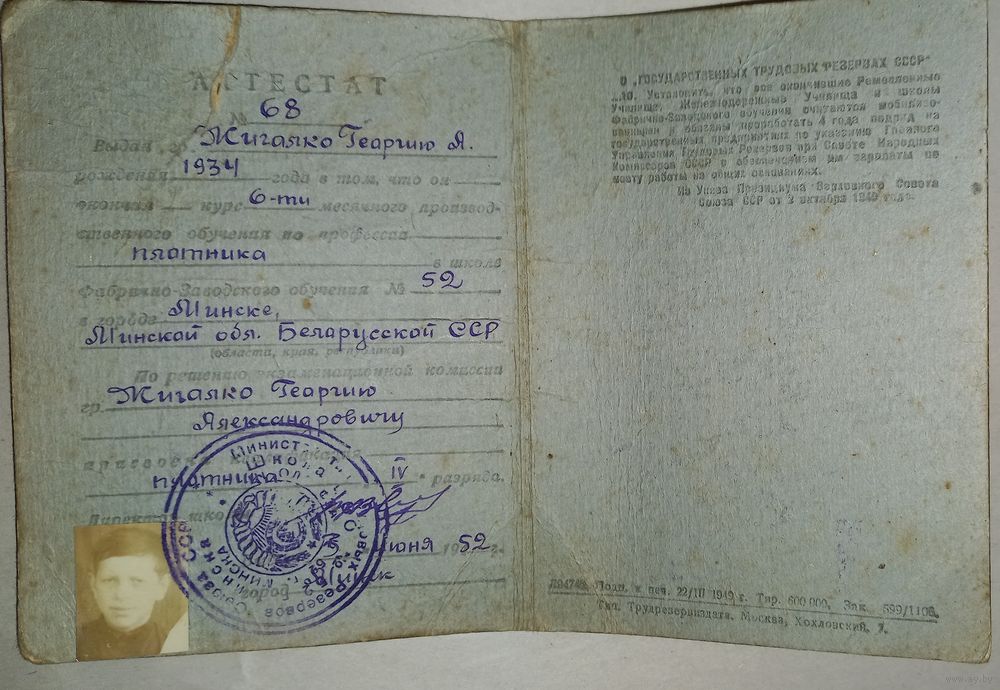 АТТЕСТАТ
№ 68
Выдан Жигалко Георгию А.
рождения 1934 года в том, что он
окончил курс 6-ти месячного производ-
ственного обучения по профессии
плотника в школе
Фабрично-Заводского обучения № 52
в городе Минске,
Минской обл. Белорусской ССР
(области, края, республики)
По решению экзаменационной комиссии
гр. Жигалко Георгию
Александровичу
присвоен
плотника IV разряда.
Директор школы
июня 1952 г.
город Минск
О „ГОСУДАРСТВЕННЫХ ТРУДОВЫХ РЕЗЕРВАХ СССР"
...10. Установить, что все окончившие Ремесленные
Училища, Железнодорожные Училища и школы
Фабрично-Заводского обучения считаются мобилизо-
ванными и обязаны проработать 4 года подряд на
государственных предприятиях по указанию Главного
Управления Трудовых Резервов при Совете Народных
Комиссаров СССР с обеспечением им зарплаты по
месту работы на общих основаниях.
Из Указа Президиума Верховного Совета
Союза ССР от 2 октября 1940 года.
Подп. к печ. 22/III 1949 г. Тир. 600 000. Зак. 599/1106.
Тип. Трудрезервиздата. Москва, Хохловский, 7.
www.ay.by